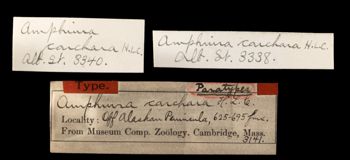 Amphiura
carchara H.L.C.
Alb. St. 3340.
Amphiura carchara H.L.C.
Alb. St. 3338.
Type. Paratypes
Amphiura carchara H.L.C.
Locality: Off Alaskan Peninsula, 625-695 fms.
From Museum Comp. Zoology, Cambridge, Mass.
3141.